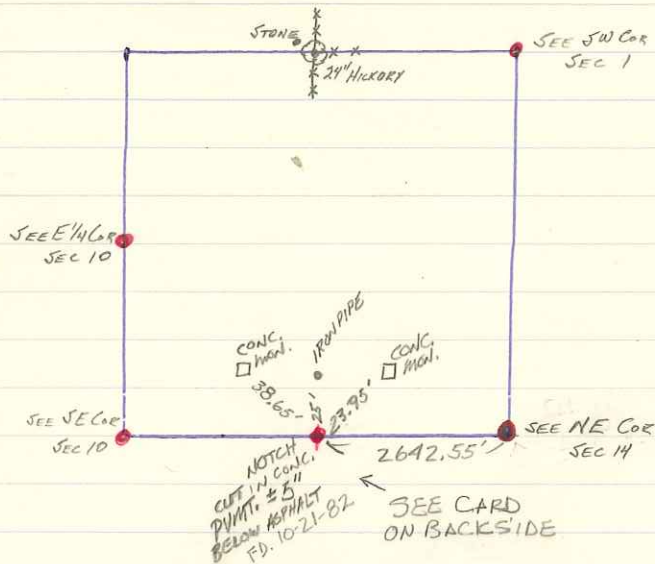 STONE
24" HICKORY
SEE SW COR
SEC 1
SEE E 1/4 COR
SEC 10
CONC.
MON.
IRON PIPE
CONC.
MON.
38.65'
23.95'
SEE SE COR
SEC 10
2642.55'
SEE NE COR
SEC 14
NOTCH
CUT IN CONC.
PVMT. ± 5"
BELOW ASPHALT
FD. 10-21-82
SEE CARD
ON BACKSIDE